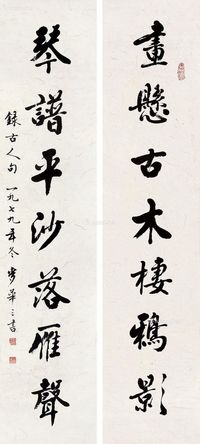 畫懸古木棲鴉影
琴譜平沙落雁聲
錄古人句 一九七九年冬 步華之書